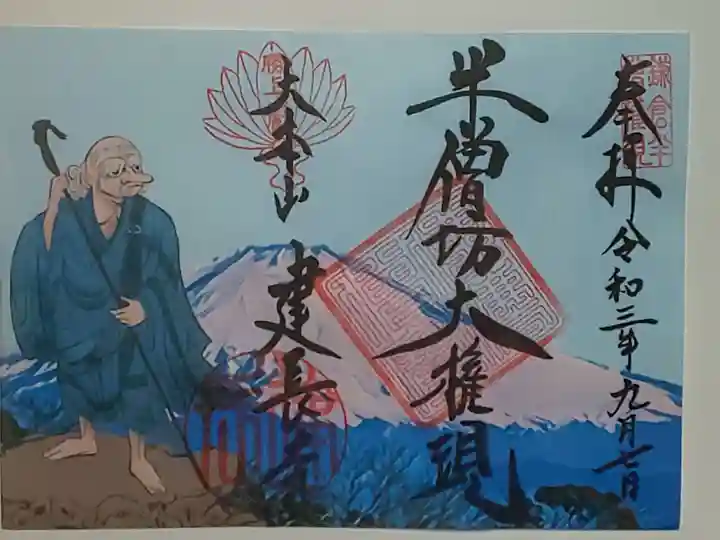 奉拝 令和三年九月七日
半僧坊大権現
大本山 建長寺